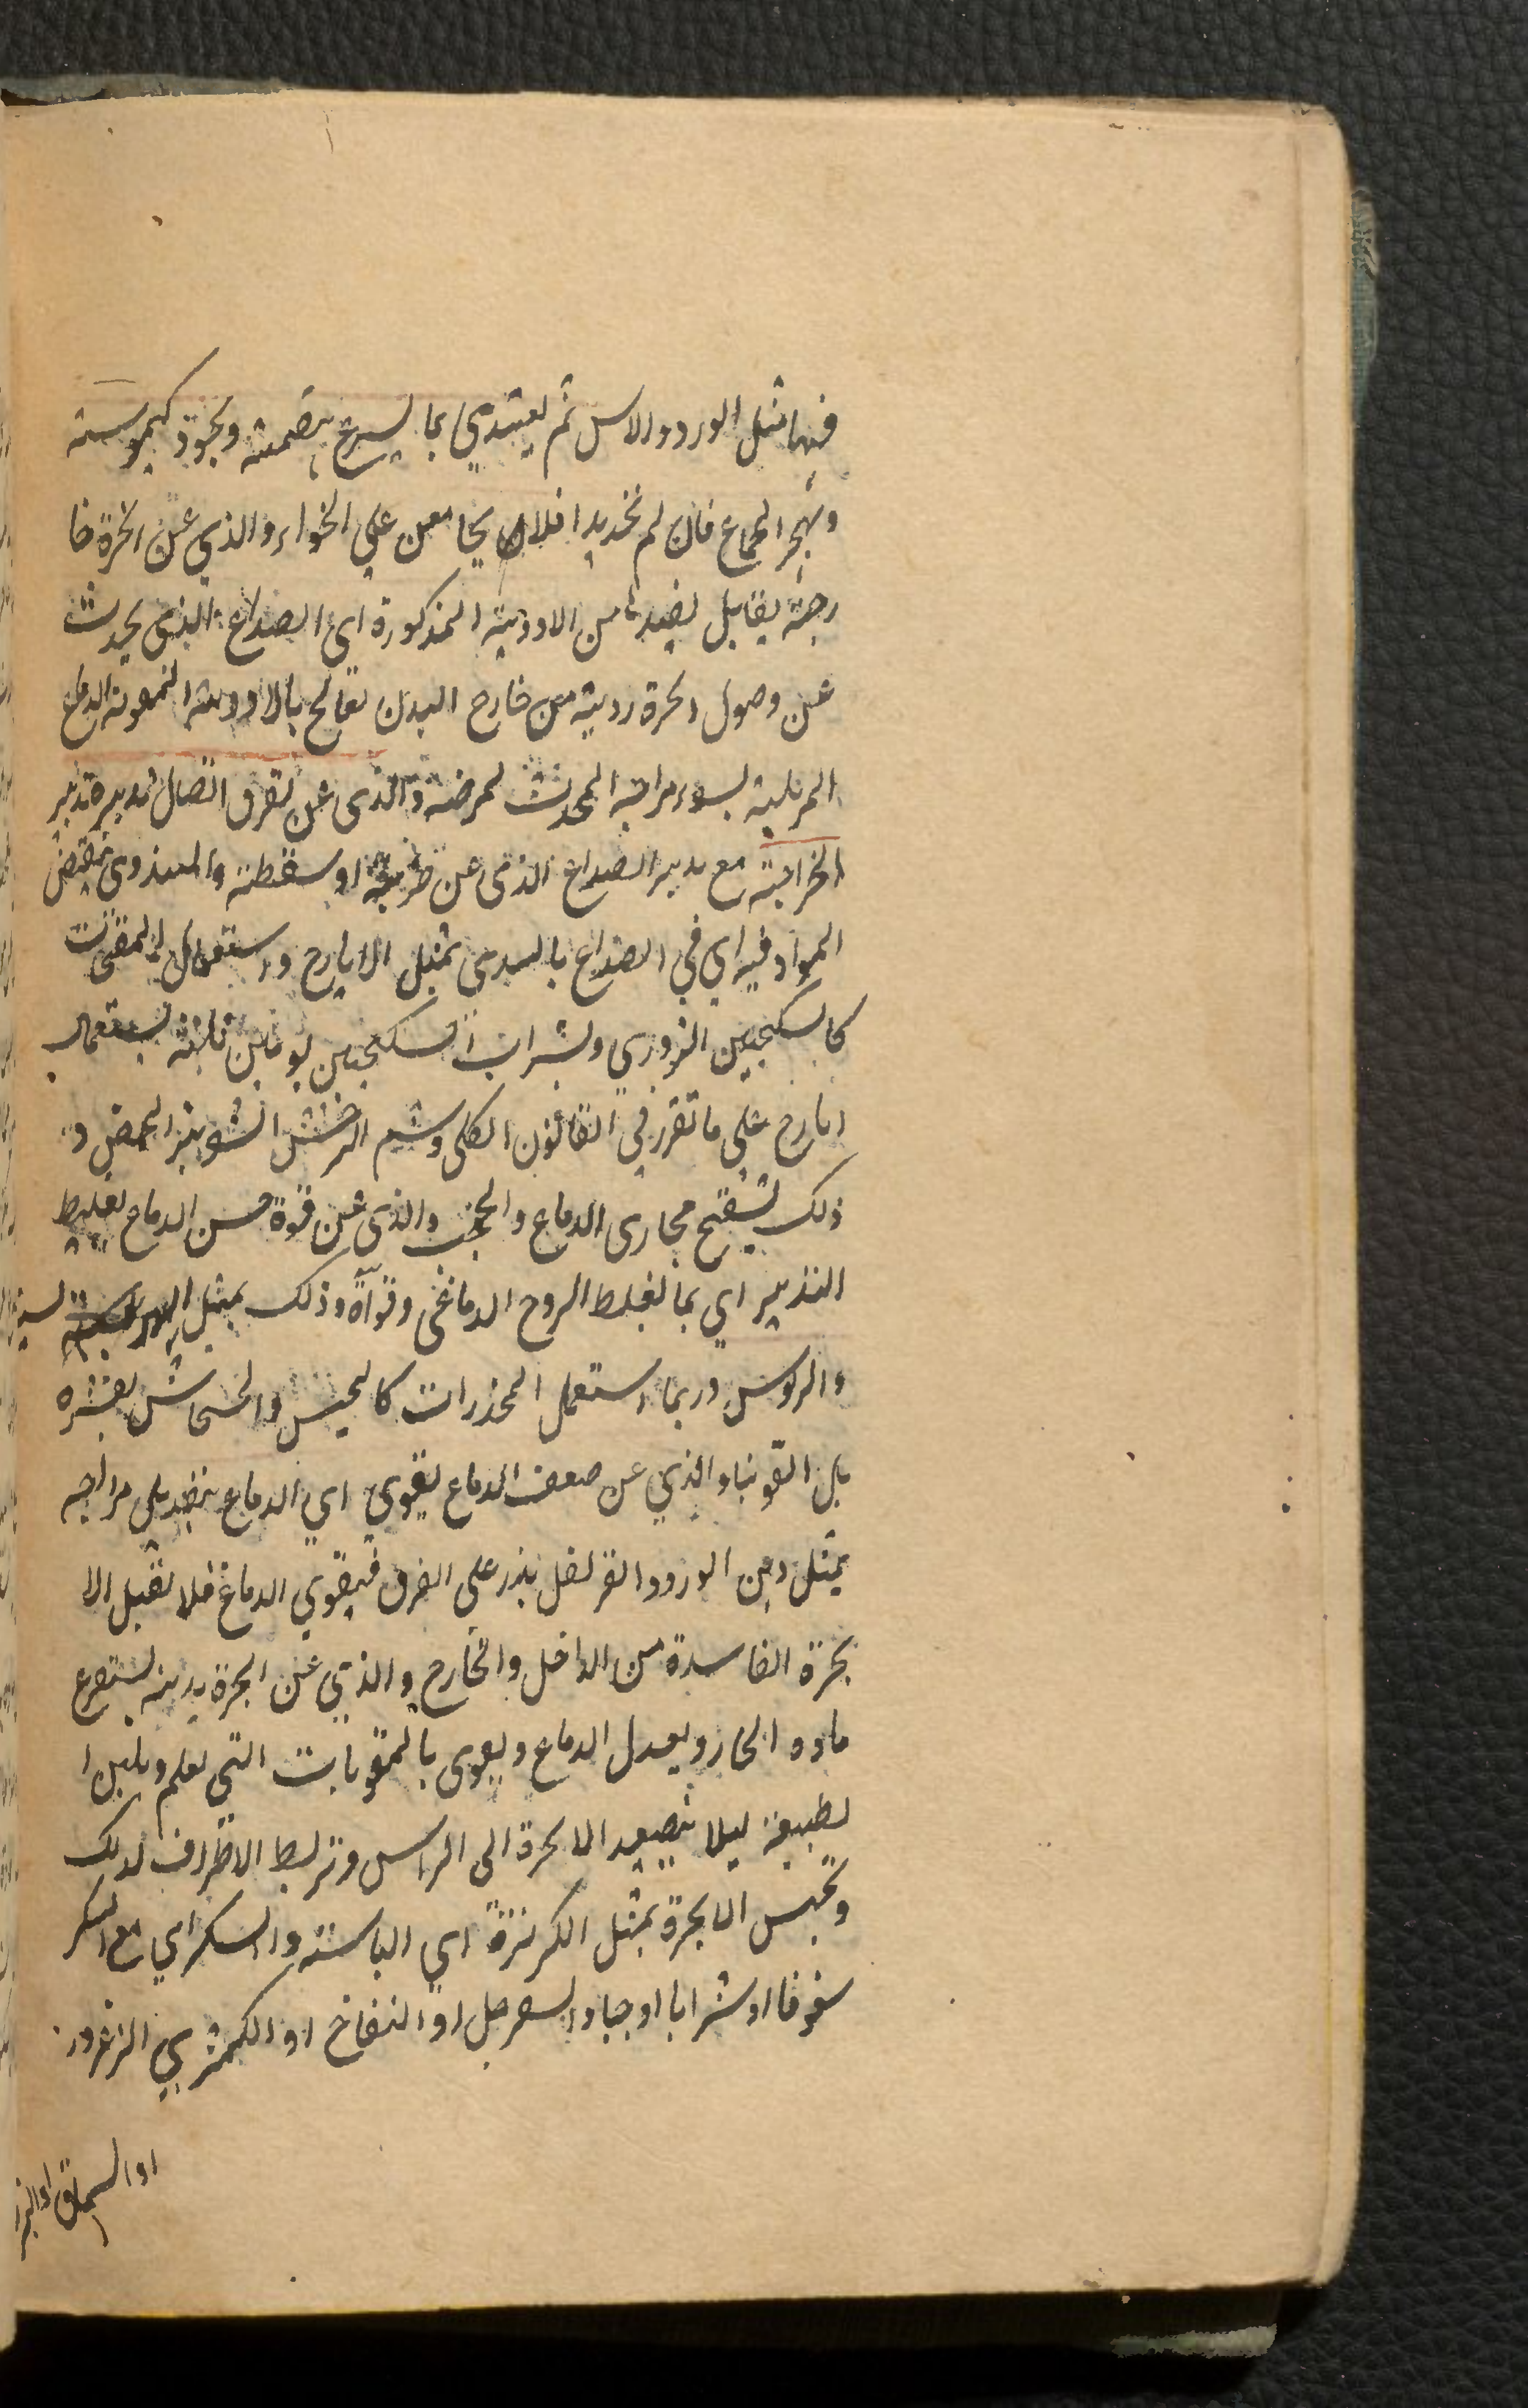 فيها مثل الورد والاس ثم يغتدي بما يسرع هضمه ويجود كيموسه
ويهجر الجماع فان لم نجد بدا فلا يجامعن علي الخواء والذي عن ابخرة خا
رجية يقابل بضدها من الادوية المذكورة اي الصداع الذي يحدث
عن وصول ابخرة ردية من خارج البدن تعالج بالادوية المقوية الدماغ
المزيلة لسوء مزاجه المحدث لمرضه والذي عن تفرق اتصال تدبيره تدبير
الجراحة مع تدبير الصداع الذي عن ضربة او سقطة والسددي بنقص
المواد فيه اي في الصداع بالسددي بمثل الايارج واستعمال المفتحات
كالسكنجبين البزوري وشراب السكنجبين يومين ثلاثة يستعمال
ايارج علي ما تقرر في القانون الكلي وشم الشونيز المحمص و
ذلك لتفتح مجاري الدماغ والحجب والذي عن قوة حس الدماغ تغليط
التدبير اي بما يغلط الروح الدماغي وقواه وذلك بمثل الهريسة
والروس وربما استعمل المخدرات كالخس والخشخاش بقشره
بل اقوينا والذي عن ضعف الدماغ يقوي اي الدماغ بتعديل مزاجه
بمثل دهن الورد والقرنفل يذر علي الفرق فيقوي الدماغ فلا يقبل الا
بخرة الفاسدة من الداخل والخارج والذي عن ابخرة بدنية يستفرغ
مادة البخار ويعدل الدماغ ويقوي بالمقويات التي تعلم ويلين ا
لطبيعة ليلا يتصعد الابخرة الي الراس وتربط الاطراف لذلك
وتحبس الابخرة بمثل الكزبرة اي اليابسة والسكر اي مع السكر
سفوفا او شرابا او حبا والسفرجل او التفاح او الكمثري الزعرور
او السماق